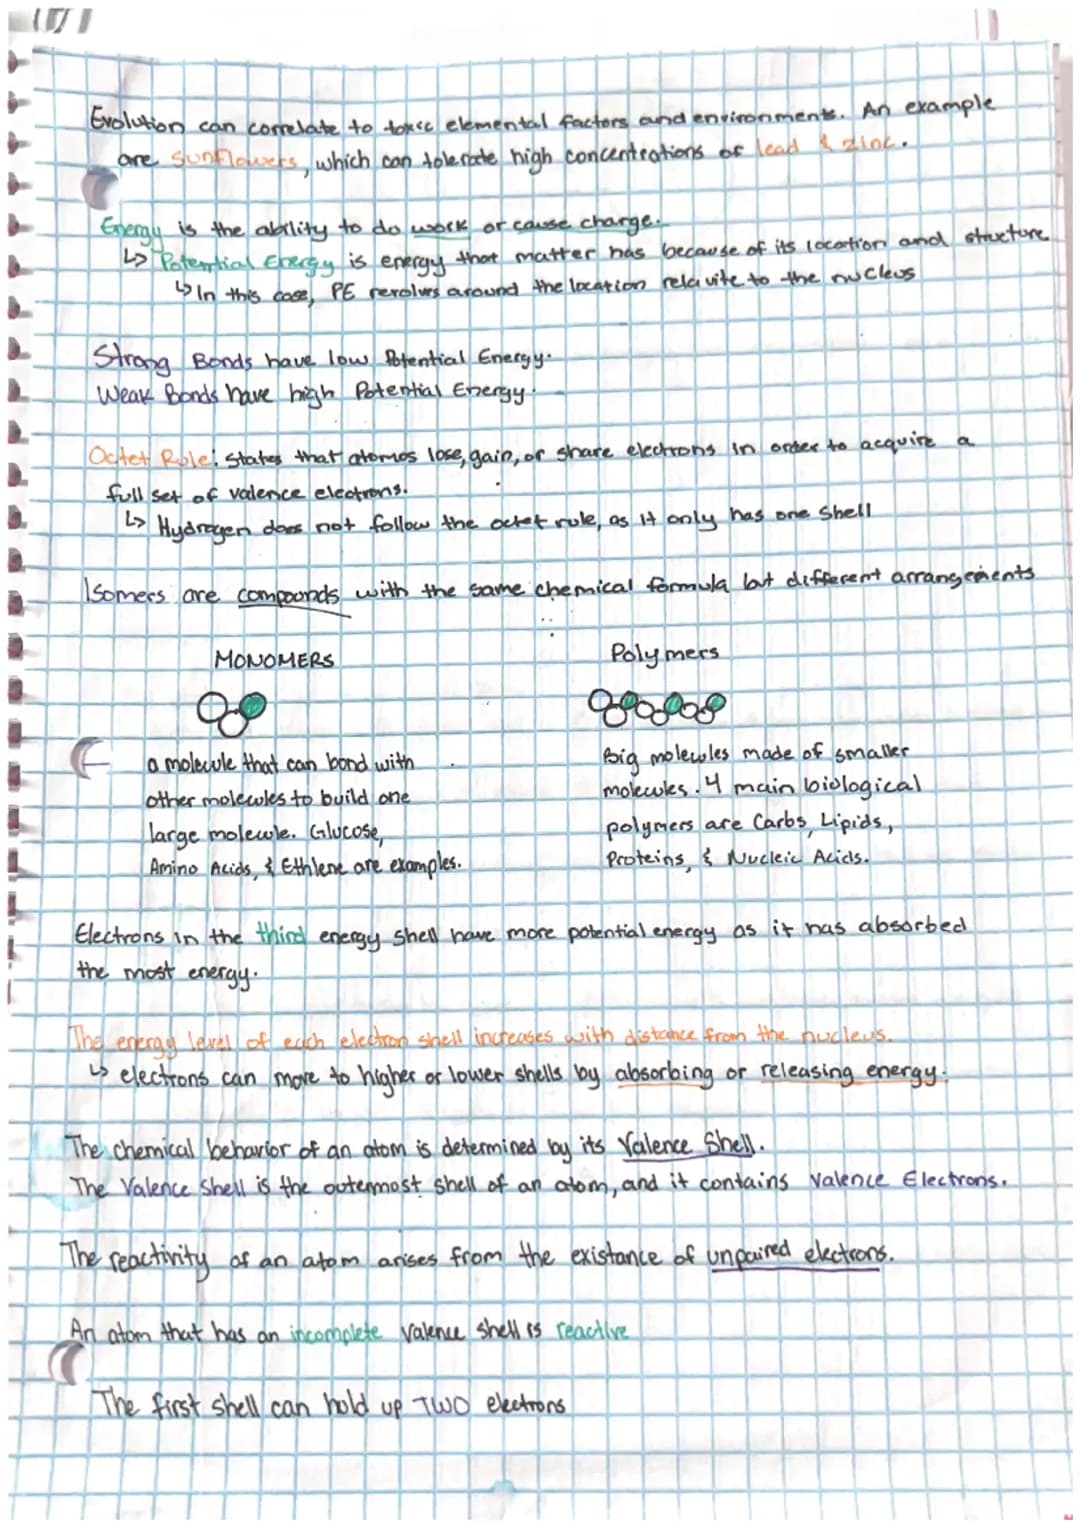 Evolution can correlate to toxic elemental factors and environments. An example
are Sunflowers, which can tolerate high concentrations of lead & zinc.
Energy is the ability to do work or cause charge.
↳ Potential Energy is energy that matter has because of its location and structure
↳ In this case, PE revolves around the location relavite to the nucleus
Strong Bonds have low Potential Energy.
Weak Bonds have high Potential Energy.
Octet Rule: States that atomos lose, gain, or share electrons in order to acquire a
full set of valence electrons.
↳ Hydrogen does not follow the octet rule, as it only has one shell
Isomers are compounds with the same chemical formula but different arrangements
MONOMERS
a molecule that can bond with
other molecules to build one
large molecule. Glucose,
Amino Acids, & Ethlene are examples.
Polymers
Big molecules made of smaller
molecules. 4 main biological
polymers are Carbs, Lipids,
Proteins, & Nucleic Acids.
Electrons in the third energy shell have more potential energy as it has absorbed
the most energy.
The energy level of each electron shell increases with distance from the nucleus.
↳ electrons can move to higher or lower shells by absorbing or releasing energy.
The chemical behavior of an atom is determined by its Valence Shell.
The Valence Shell is the outermost shell of an atom, and it contains Valence Electrons.
The reactivity of an atom arises from the existance of unpaired electrons.
An atom that has an incomplete valence shell is reactive
The first shell can hold up TWO electrons